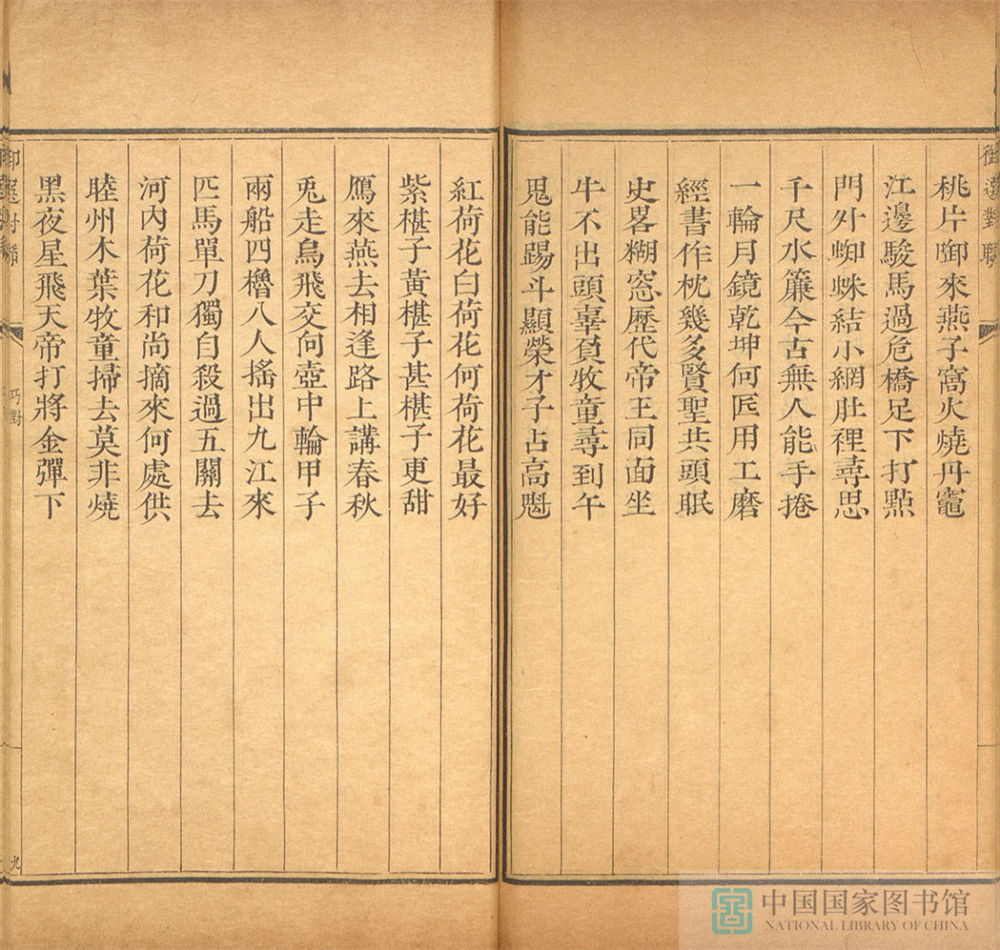 桃片啣來燕子窩火燒丹竈
江邊駿馬過危橋足下打點
門外蜘蛛結小網肚裡尋思
千尺水簾今古無人能手捲
一輪月鏡乾坤何匠用工磨
經書作枕幾多賢聖共頭眠
史畧糊窓歷代帝王同面坐
牛不出頭辜負牧童尋到午
鬼能踢斗顯榮才子占高魁
紅荷花白荷花何荷花最好
紫椹子黃椹子甚椹子更甜
鴈來燕去相逢路上講春秋
兎走烏飛交何壺中輪甲子
兩船四櫓八人搖出九江來
匹馬單刀獨自殺過五關去
河內荷花和尚摘來何處供
睦州木葉牧童掃去莫非燒
黑夜星飛天帝打將金彈下
巧對
九
中国国家图书馆
NATIONAL LIBRARY OF CHINA